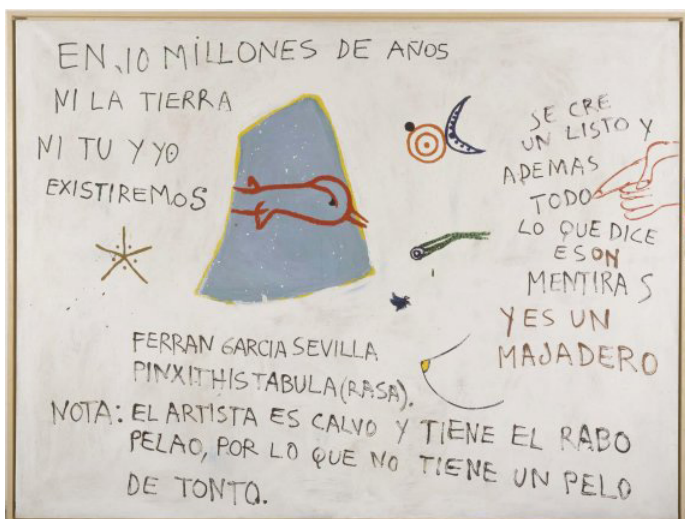 EN 10 MILLONES DE AÑOS
NI LA TIERRA
NI TU Y YO
EXISTIREMOS
SE CRE
UN LISTO Y
ADEMAS
TODO
LO QUE DICE
ESON
MENTIRAS
Y ES UN
MAJADERO
FERRAN GARCIA SEVILLA
PINXIT HIS TABULA (RASA).
NOTA: EL ARTISTA ES CALVO Y TIENE EL RABO
PELAO, POR LO QUE NO TIENE UN PELO
DE TONTO.